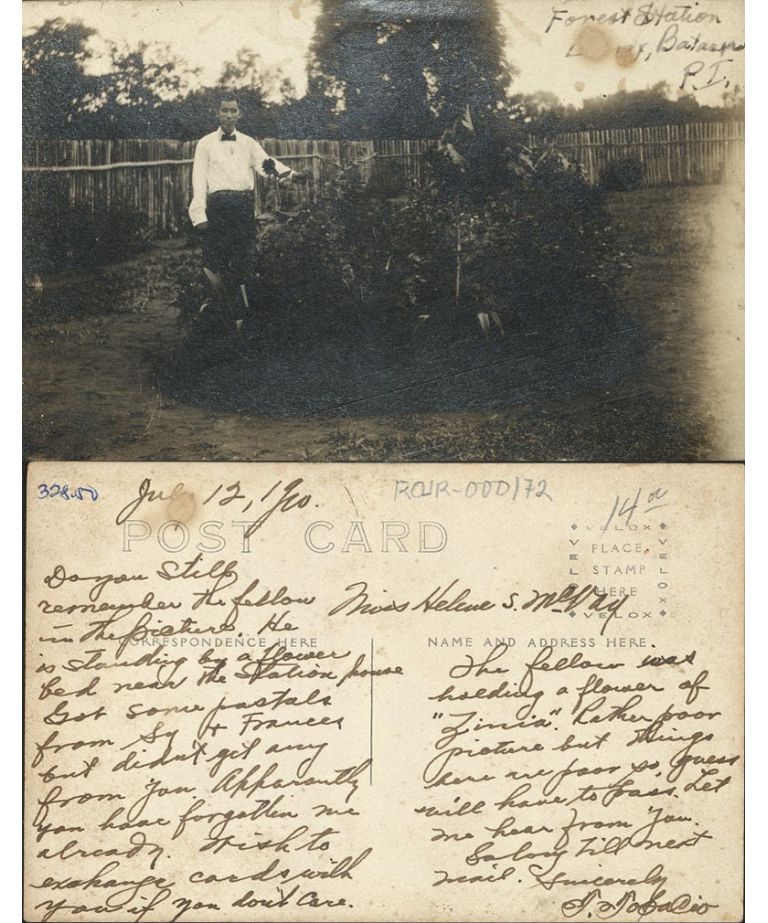 Forest Station
Bataan
P.I.
328.50
July 12, 1910.
RCHR-000172
14 00
POST CARD
VELOX
VELOX
VELOX
VELOX
PLACE
STAMP
HERE
Do you Still
remember the fellow
in the picture. He
is standing by a flower
bed near the Station house
Got some postals
from Sy & Frances
but didn't get any
from you. Apparently
you have forgotten me
already. Wish to
exchange cards with
you if you don't care.
CORRESPONDENCE HERE
Miss Helene S. McVay
NAME AND ADDRESS HERE
The fellow was
holding a flower of
"Zinia". Rather poor
picture but things
here are poor so, guess
will have to pass. Let
me hear from you.
till next
mail. Sincerely